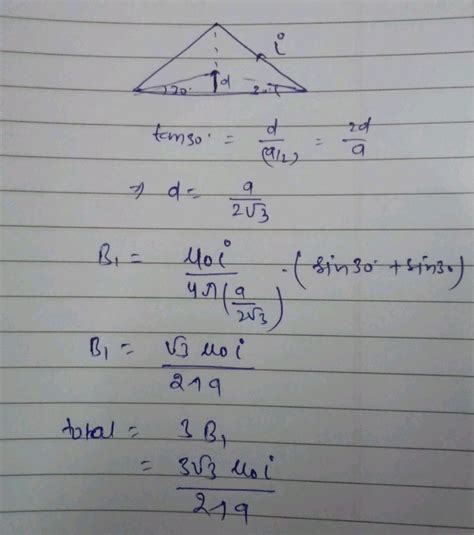 i
30° d 30°
tan30° = d/(a/2) = 2d/a
⇒ d = a/2√3
B₁ = μ₀i/4π(a/2√3) · (sin30° + sin30)
B₁ = √3 μ₀i/2πa
total = 3B₁
= 3√3 μ₀i/2πa